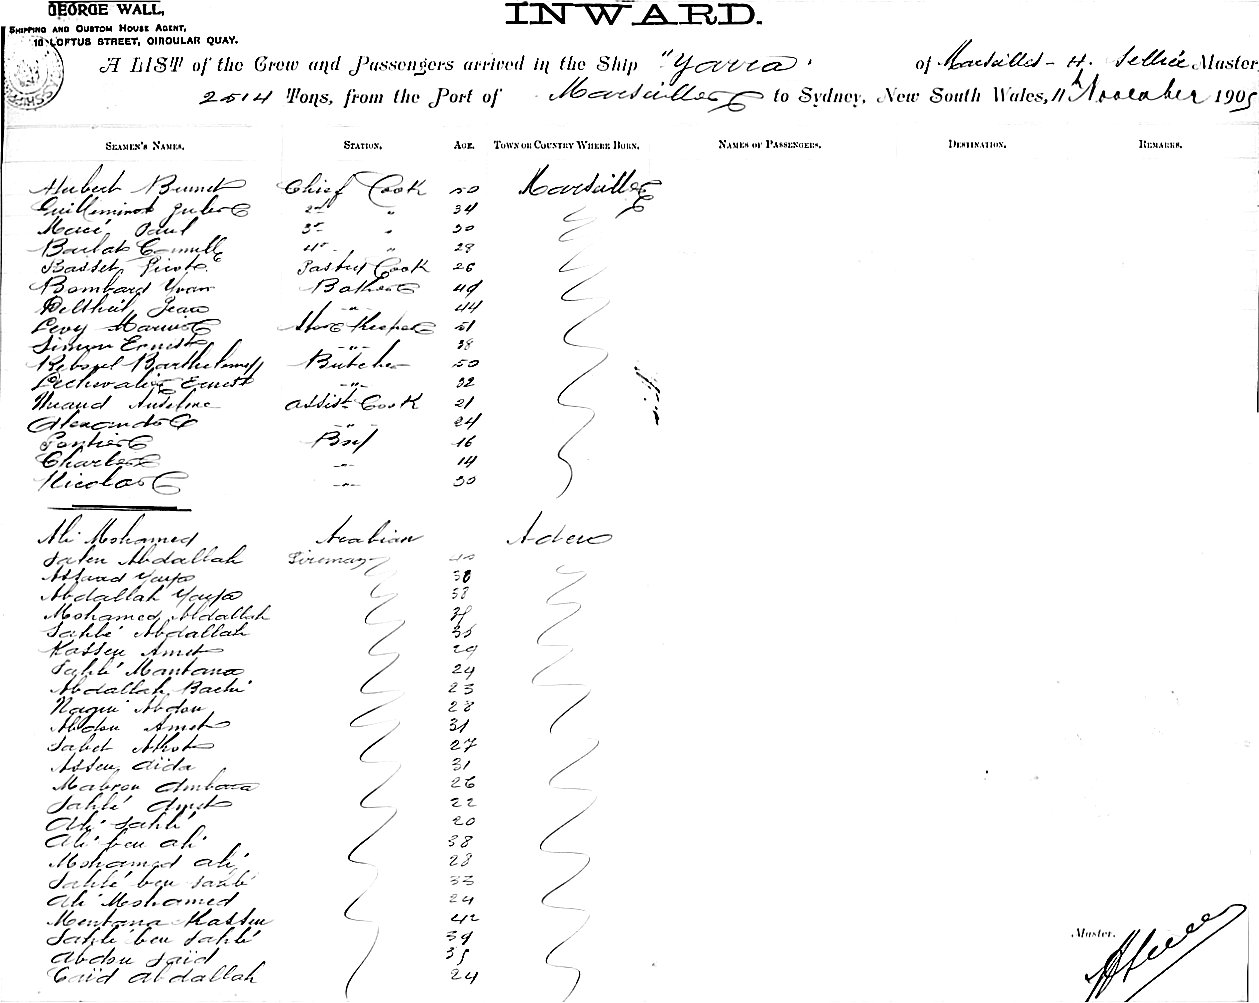 GEORGE WALL,
SHIPPING AND CUSTOM HOUSE AGENT,
10 LOFTUS STREET, CIRCULAR QUAY.
INWARD.
A LIST of the Crew and Passengers arrived in the Ship "Yarra" of Marseilles - H. Sellier Master,
2514 Tons, from the Port of Marseilles to Sydney, New South Wales, 11th November 1905
SEAMEN'S NAMES. STATION. AGE. TOWN OR COUNTRY WHERE BORN. NAMES OF PASSENGERS. DESTINATION. REMARKS.
Hubert Brunet Chief Cook 50 Marseilles
Guilleminot Jules 2nd " 34
Macé Paul 3rd " 30
Barlat Camille 4th " 28
Basset Pastry Cook 26
Bombard Yvan Baker 49
Delthil Jean " 44
Levy Marius Store Keeper 51
Simon Ernest " 38
Reboul Barthelemy Butcher 50
Lechevalier Ernest " 32
Anselme Assist. Cook 21
Alexandre " 24
Pontier Boy 16
Charles " 14
Nicolas " 30
Ali Mohamed Arabian Aden
Salen Abdallah Fireman 40
Assaad Yaya 38
Abdallah Yaya 38
Mohamed Abdallah
Sahlé Abdallah 35
Kassen Amet 29
Sahlé Mantana 24
Abdallah Bachi 23
Nagui Abdou 28
Abdou Amet 31
Sabet Athot 27
Assen Aida 31
Mabrou Ambara 26
Sahlé Amet 22
Ali Sahlé 20
Ali ben Ali 38
Mohamed Ali 28
Sahlé ben Sahlé 33
Ali Mohamed 24
Mentana Kassen 42
Sahlé ben Sahlé 39
Abdou Said 35
Caïd Abdallah 24
Master.